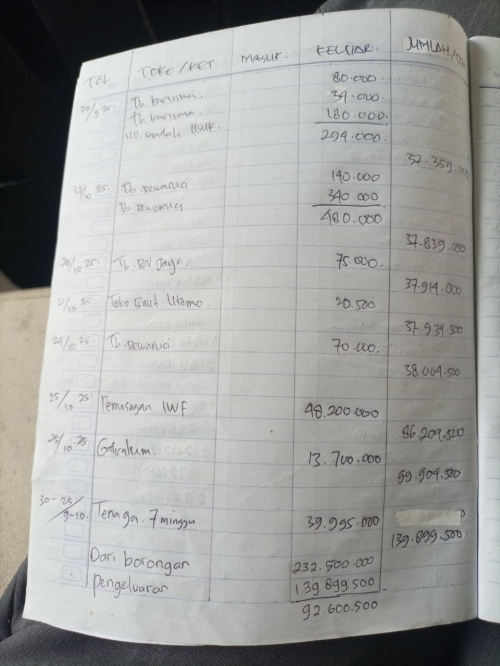 TGL TOKO/KET MASUK. KELUAR. JUMLAH
80.000
Tb. barisma. 34.000
Tb. barisma. 180.000.
294.000
37.359.000
140.000
Tb. Dewaruci 340.000
Tb. Dewaruci 480.000
37.839.000
20/10 25. Tb. BN Jaya 75.000.
37.914.000
21/10 25. Toko Utamo. 20.500
37.934.500
Tb. Dewaruci 70.000.
38.004.500
25/10 25 Pemasagan IWF 48.200.000
86.204.500
25/10 25 Galvalum. 13.700.000
99.904.500
30-25/9-10. Tenaga 7 minggu 39.995.000
139.899.500
Dari borongan 232.500.000
Pengeluaran 139.899.500
92.600.500